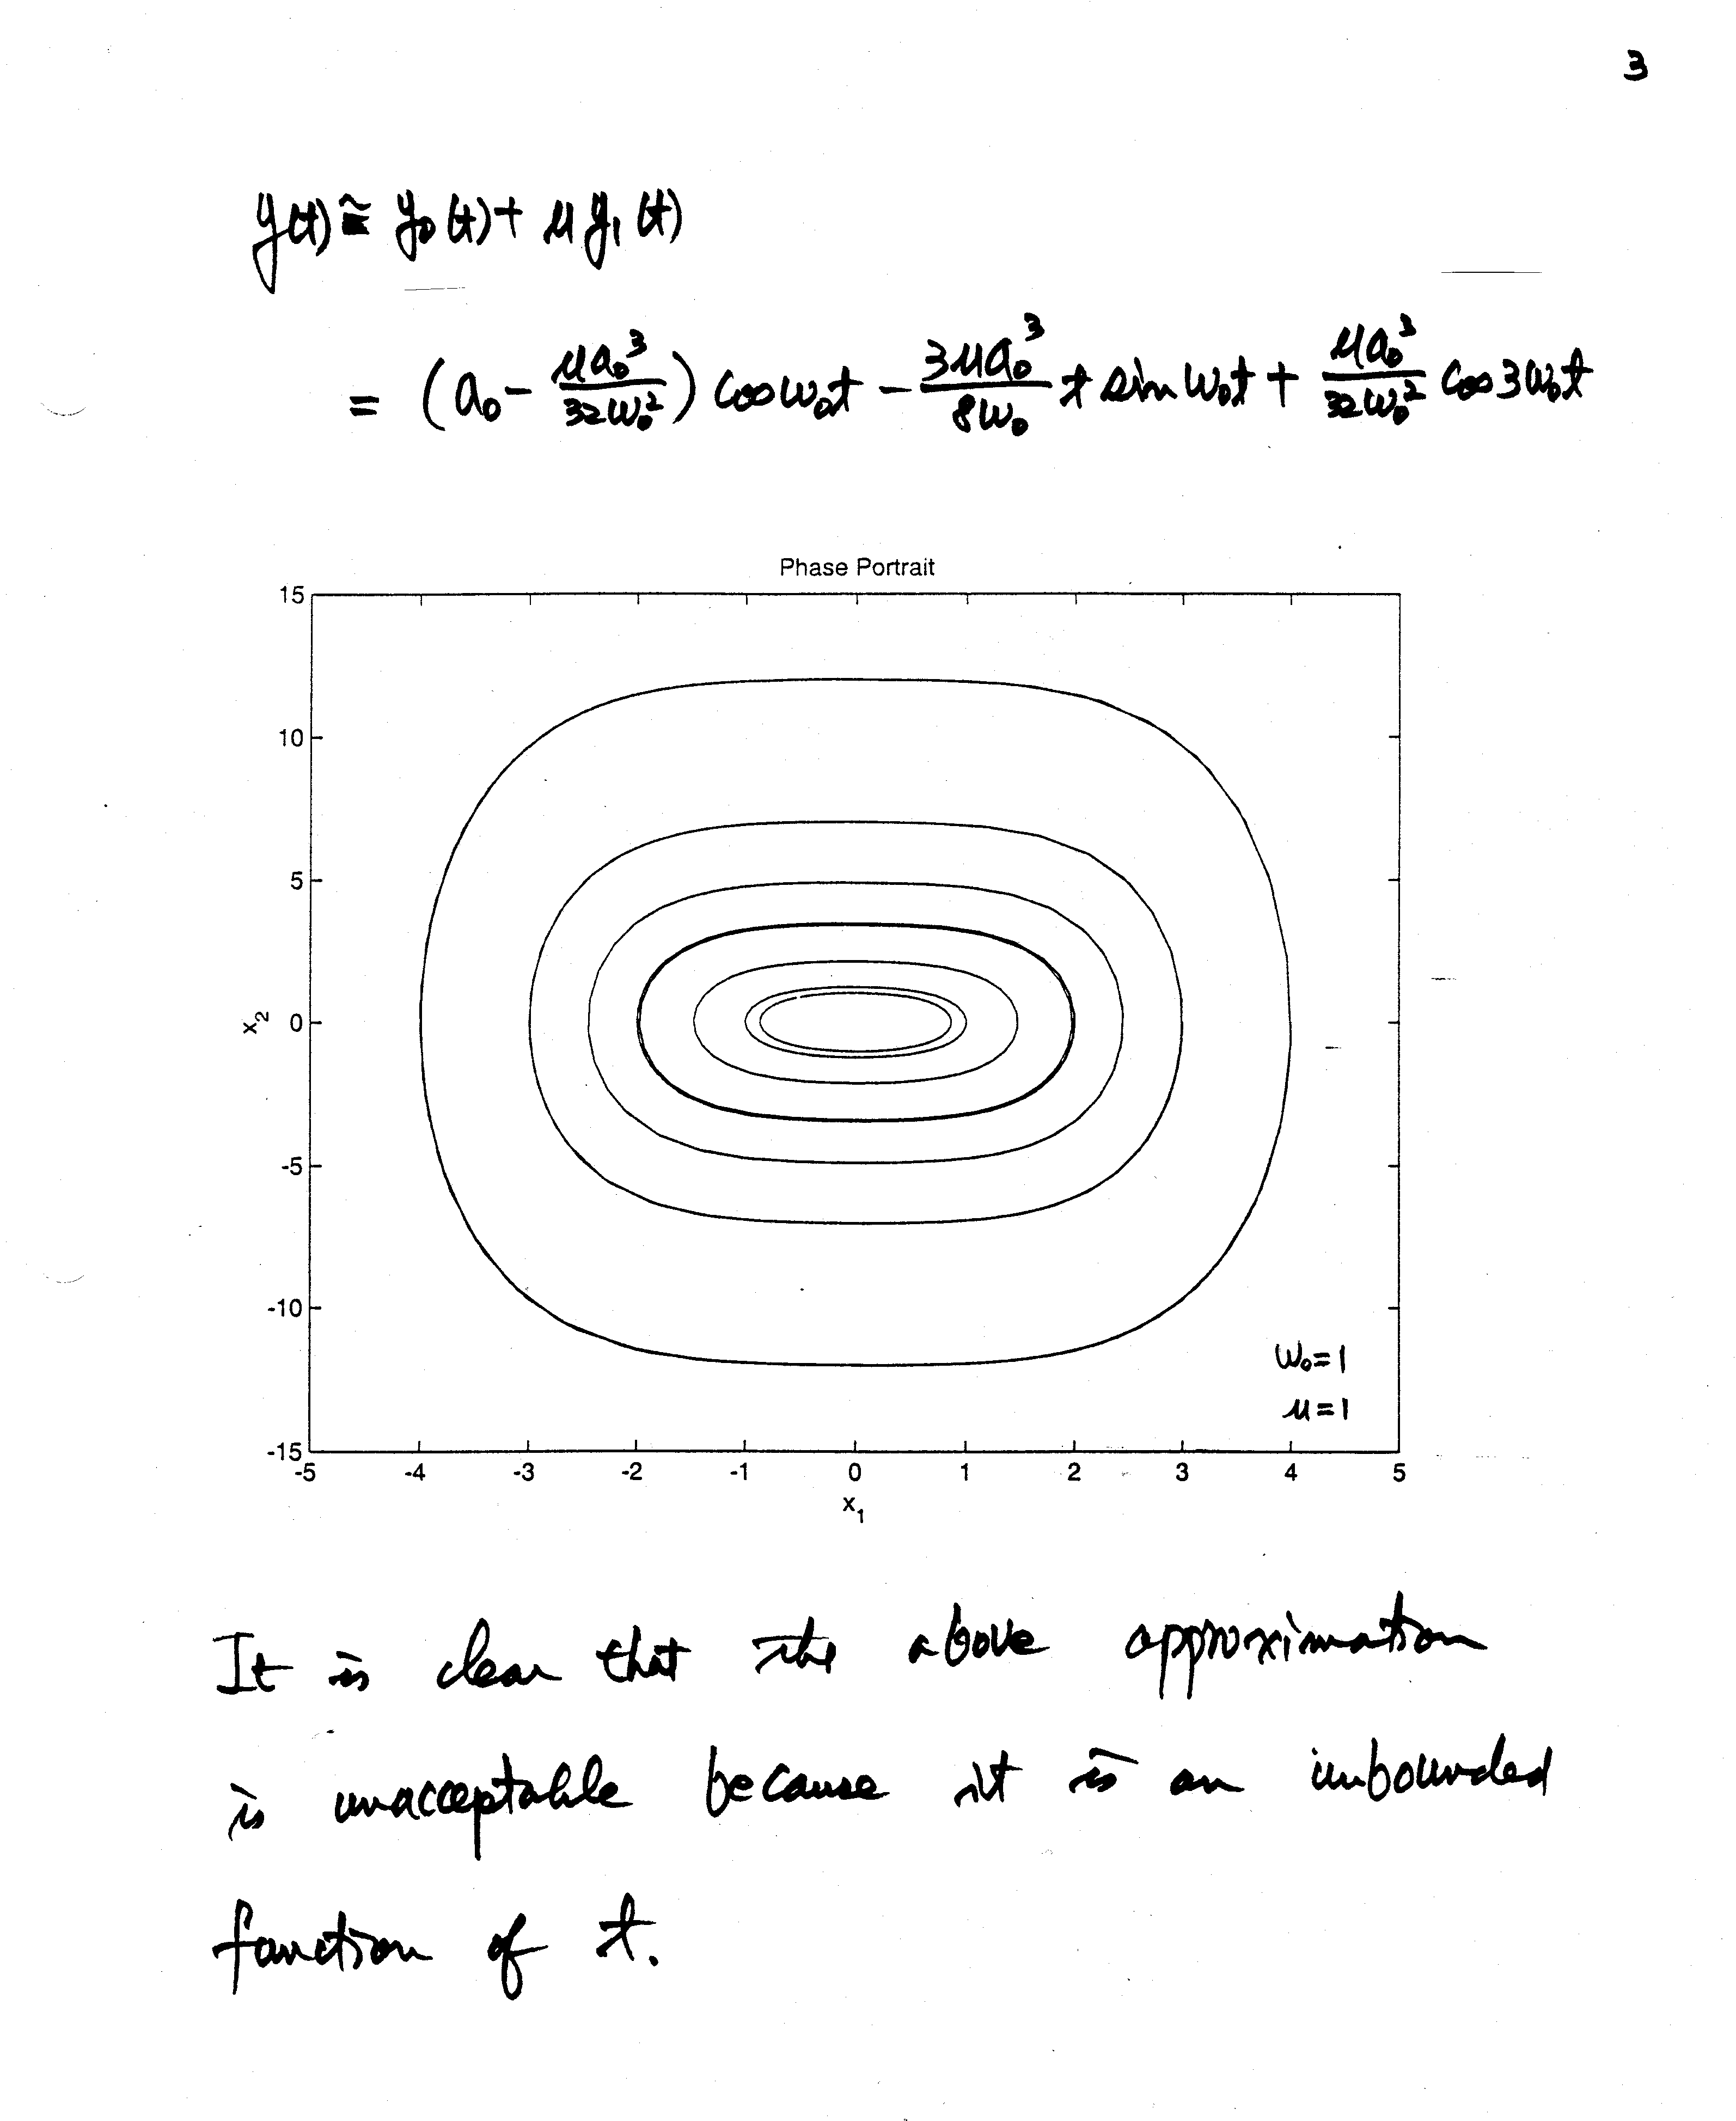 3
y(t) ≅ y₀(t) + μ y₁(t)
= (a₀ - μa₀³/32ω₀²) cos ω₀t - 3μa₀³/8ω₀ t sin ω₀t + μa₀³/32ω₀² cos 3ω₀t
Phase Portrait
15
10
5
0
-5
-10
-15
x₂
ω₀ = 1
μ = 1
-5 -4 -3 -2 -1 0 1 2 3 4 5
x₁
It is clear that the above approximation
is unacceptable because it is an unbounded
function of t.